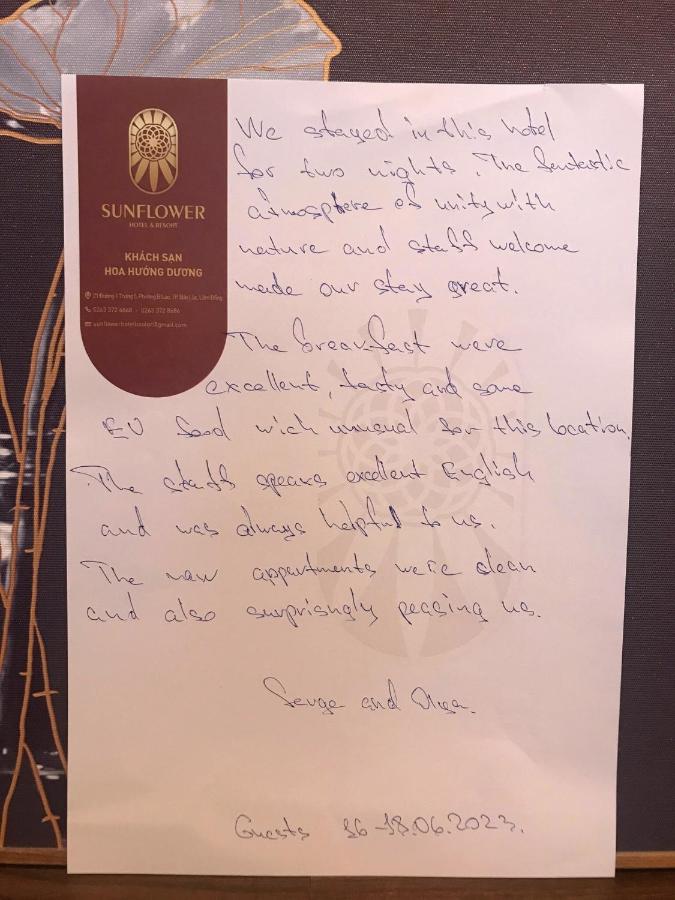 SUNFLOWER
HOTEL & RESORT
KHÁCH SẠN
HOA HƯỚNG DƯƠNG
0263 372 6868 - 0263 372 8686
We stayed in this hotel
for two nights. The fantastic
atmosphere of unity with
nature and staff welcome
made our stay great.
The breakfast were
excellent, tasty and some
EU food wich unusual for this location.
The staff speaks excellent English
and was always helpful to us.
The new appartments were clean
and also surprisngly peasing us.
and
Guests 16-18.06.2023.